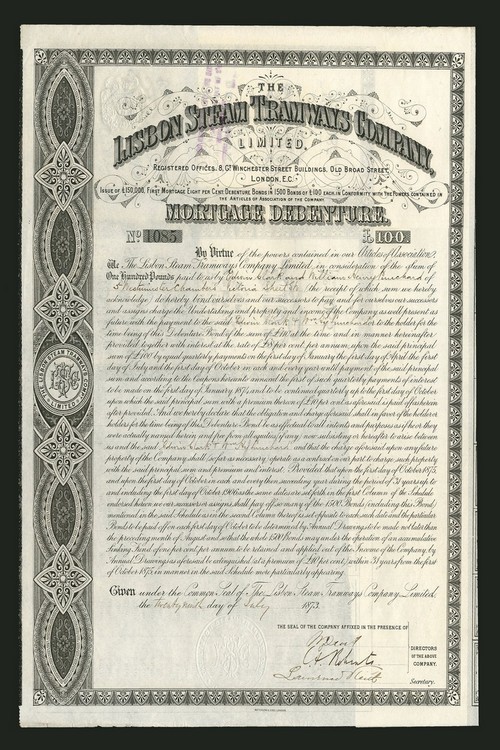 THE
LISBON STEAM TRAMWAYS COMPANY,
LIMITED.
REGISTERED OFFICES. 8, Gt WINCHESTER STREET BUILDINGS, OLD BROAD STREET,
LONDON, E.C.
ISSUE OF £150,000, FIRST MORTGAGE EIGHT PER CENT DEBENTURE BONDS IN 1500 BONDS OF £100 EACH, IN CONFORMITY WITH THE POWERS CONTAINED IN
THE ARTICLES OF ASSOCIATION OF THE COMPANY.
MORTGAGE DEBENTURE.
No 1085 £100
By Virtue of the powers contained in our Articles of Association,
We The Lisbon Steam Tramways Company Limited in consideration of the Sum of
One Hundred Pounds paid to us by Edwin Clark and William Henry Punchard of
5 Westminster Chambers Victoria Street the receipt of which sum we hereby
acknowledge, do hereby bind ourselves and our successors to pay, and for ourselves our successors
and assigns charge the Undertaking and property and income of the Company as well present as
future with the payment to the said Edwin Clark & Punchard or to the holder for the
time being of this Debenture Bond of the sum of £110 at the time and in manner hereinafter
provided together with interest at the rate of £8 per cent per annum upon the said principal
sum of £100 by equal quarterly payments on the first day of January the first day of April the first
day of July and the first day of October in each and every year until payment of the said principal
sum and according to the Coupons hereunto annexed the first of such quarterly payments of interest
to be made on the first day of January 1874, and to be continued quarterly up to the first day of October
upon which the said principal sum with a premium thereon of £10 per cent as aforesaid is paid off as herein
after provided. And we hereby declare that the obligation and charge aforesaid, shall in favor of the holder or
holders for the time being of this Debenture Bond be as effectual to all intents and purposes as if he or they
were actually named herein and free from all equities if any, now subsisting or hereafter to arise between
us and the said Edwin Clark & Punchard and that the charge aforesaid upon any future
property of the Company shall so far as necessary operate as a contract on our part to charge such property
with the said principal sum and premium and interest. Provided that upon the first day of October 1875,
and upon the first day of October in each and every then succeeding year during the period of 31 years up to
and including the first day of October 1906 as the same dates are set forth in the first Column of the Schedule
endorsed hereon we our successors or assigns, shall pay off so many of the 1500 Bonds (including this Bond)
mentioned in the said Schedule as in the second Column thereof is set opposite to each such date and the particular
Bonds to be paid off on each first day of October to be determined by Annual Drawings to be made not later than
the preceding month of August and so that the whole 1500 Bonds may under the operation of an accumulative
Sinking Fund of one per cent per annum to be returned and applied out of the Income of the Company, by
Annual Drawings as aforesaid be extinguished at a premium of £10 per cent, within 31 years from the first
of October 1875, in manner in the said Schedule more particularly appearing.
Given under the Common Seal of The Lisbon Steam Tramways Company Limited.
the Twenty Ninth day of July 1873.
THE SEAL OF THE COMPANY AFFIXED IN THE PRESENCE OF
DIRECTORS
OF THE ABOVE
COMPANY.
Secretary.